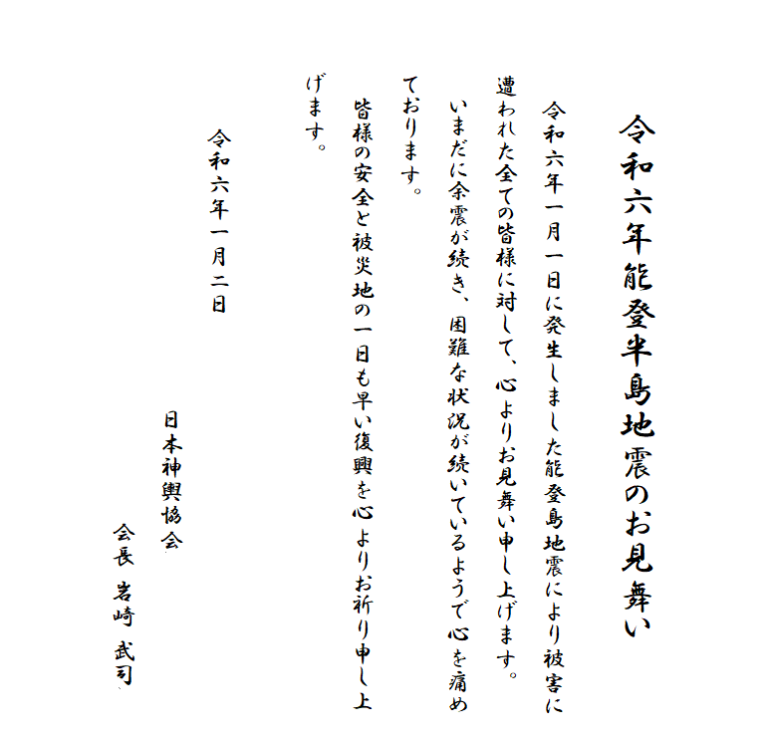 令和六年能登半島地震のお見舞い
令和六年一月一日に発生しました能登島地震により被害に
遭われた全ての皆様に対して、心よりお見舞い申し上げます。
いまだに余震が続き、困難な状況が続いているようで心を痛め
ております。
皆様の安全と被災地の一日も早い復興を心よりお祈り申し上
げます。
令和六年一月二日
日本神輿協会
会長 岩崎 武司